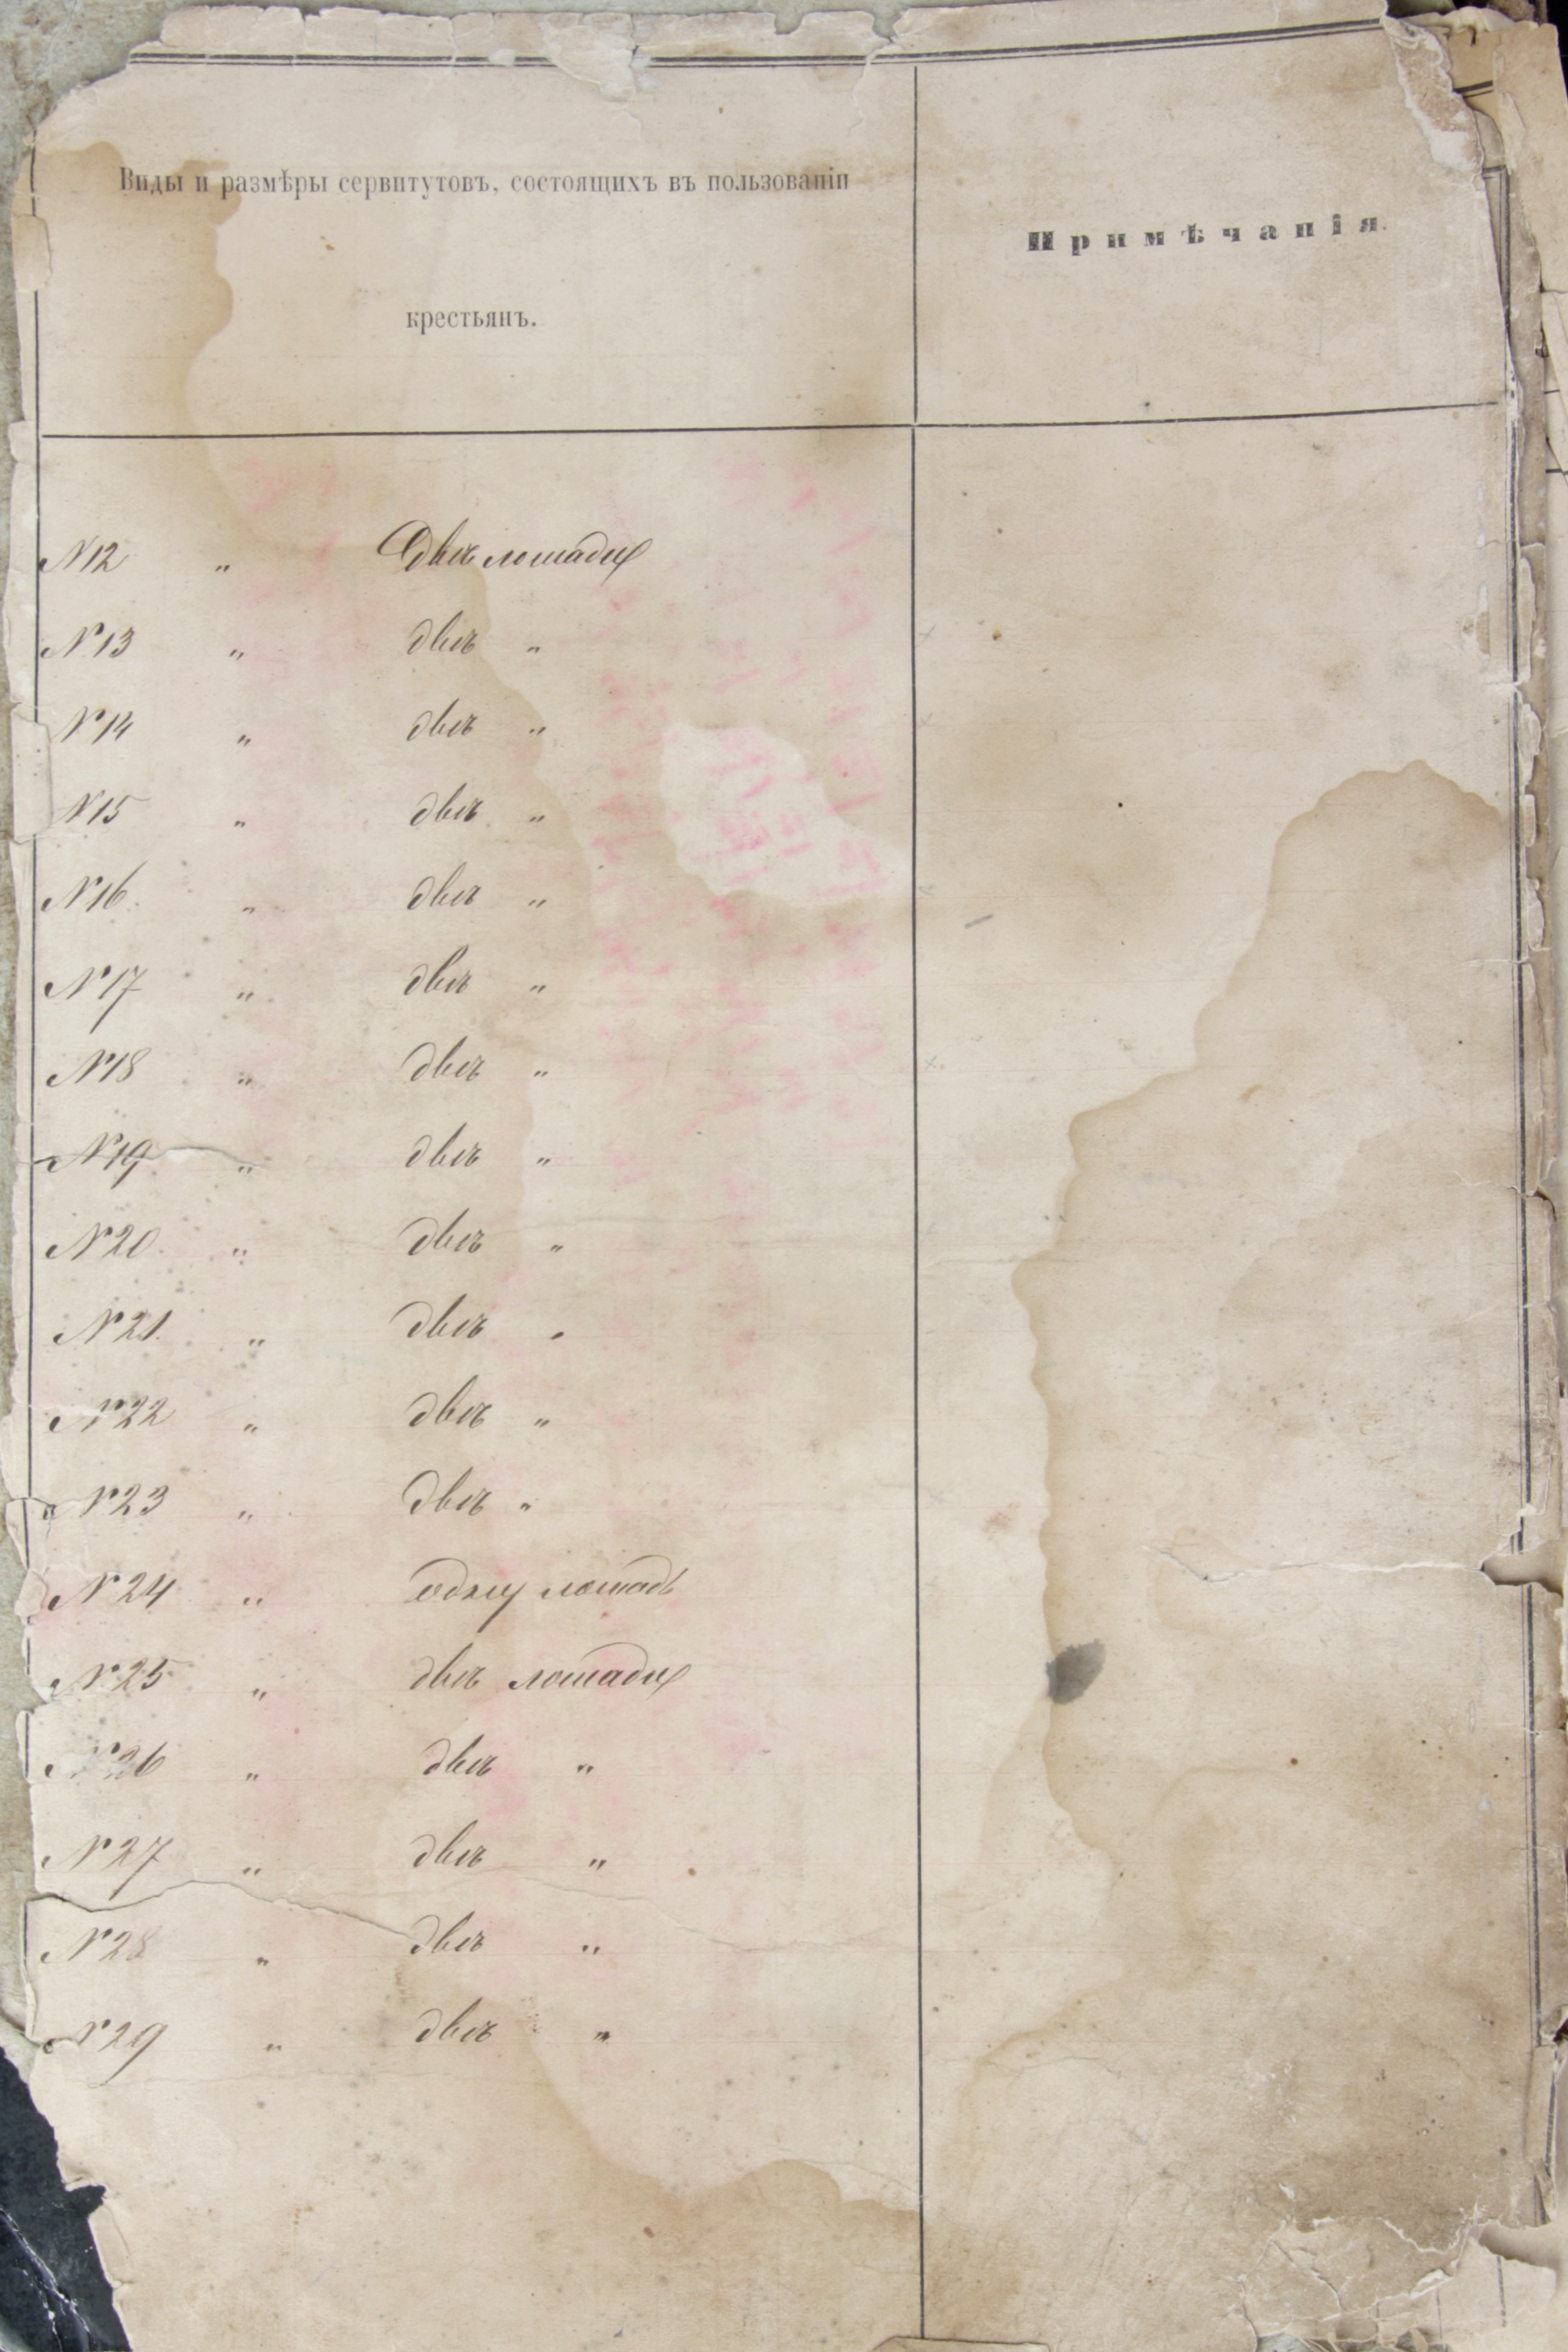 Виды и размѣры сервитутовъ, состоящихъ въ пользованіи
крестьянъ.
Примѣчанія.
N12 „ Двѣ лошади
N13 „ двѣ „
N14 „ двѣ „
N15 „ двѣ „
N16 „ двѣ „
N17 „ двѣ „
N18 „ двѣ „
N19 „ двѣ „
N20 „ двѣ „
N21 „ двѣ „
N22 „ двѣ „
N23 „ двѣ „
N24 „ одну лошадь
N25 „ двѣ лошади
N26 „ двѣ „
N27 „ двѣ „
N28 „ двѣ „
N29 „ двѣ „